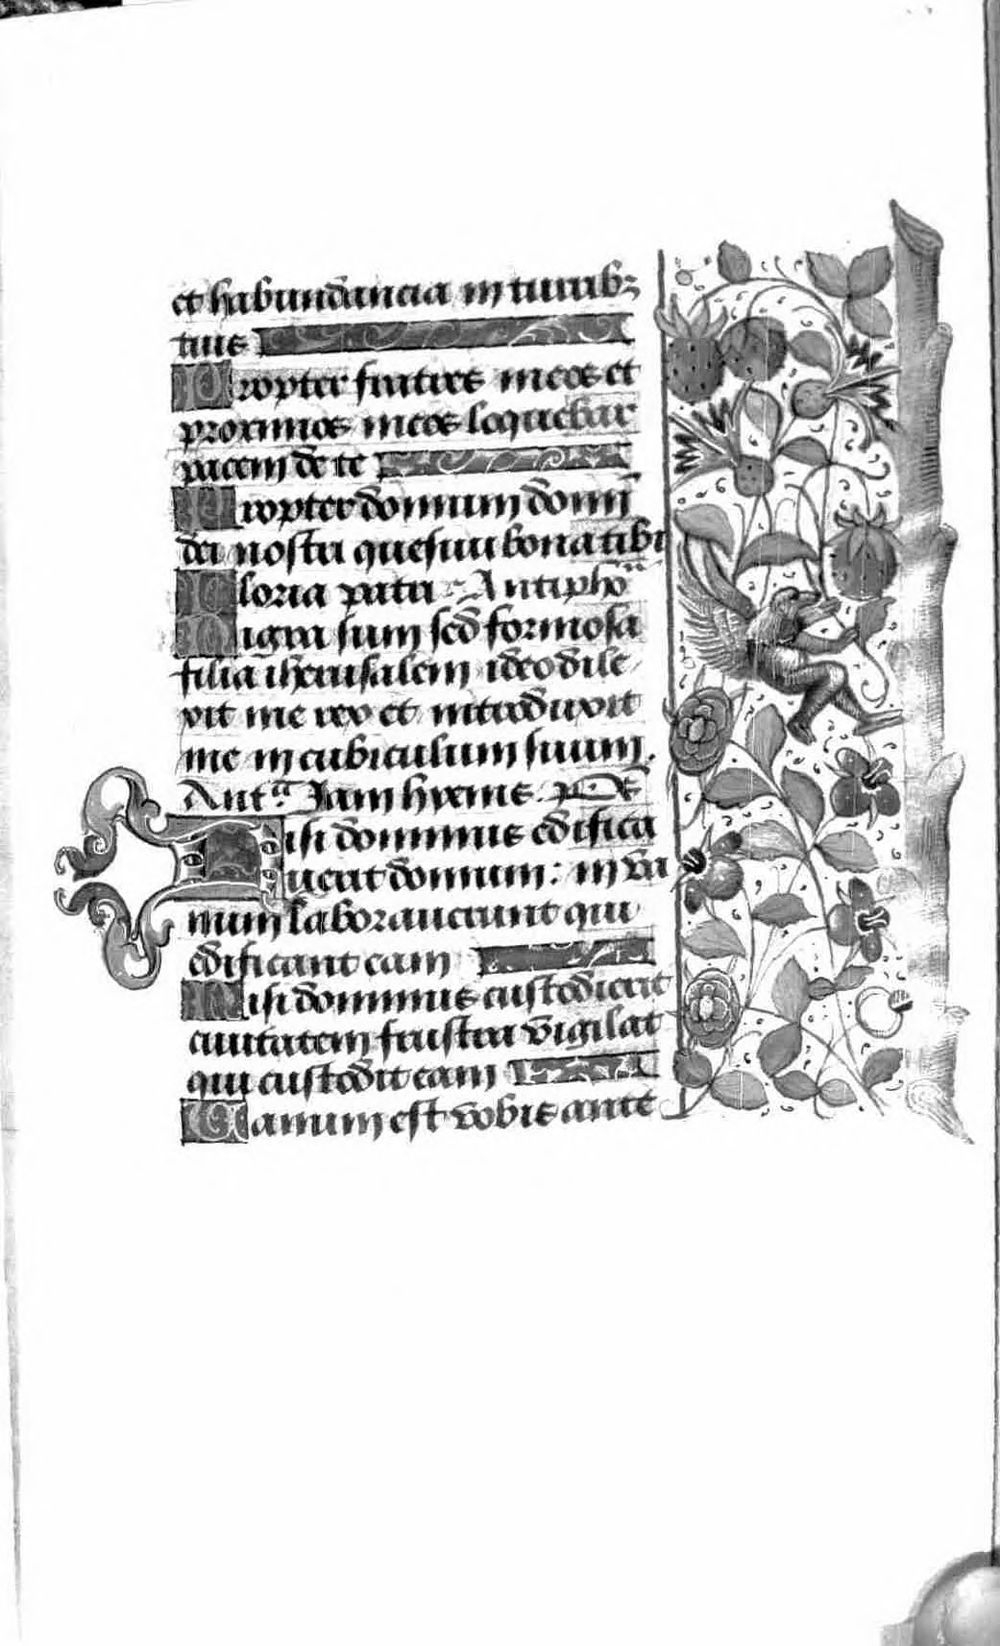 et habundancia in turribꝫ
tuis
Propter fratres meos et
proximos meos loquebar
pacem de te
Propter domum domi
dei nostri quesiui bona tibi
Gloria patri Antiphoᵃ
Nigra sum sed formosa
filia iherusalem ideo dile
xit me rex et introduxit
me in cubiculum suum.
Antᵃ Iam hyems. Ps
Nisi dominus edifica
uerit domum: in va
num laborauerunt qui
edificant eam
Nisi dominus custodierit
ciuitatem frustra vigilat
qui custodit eam
Uanum est vobis ante